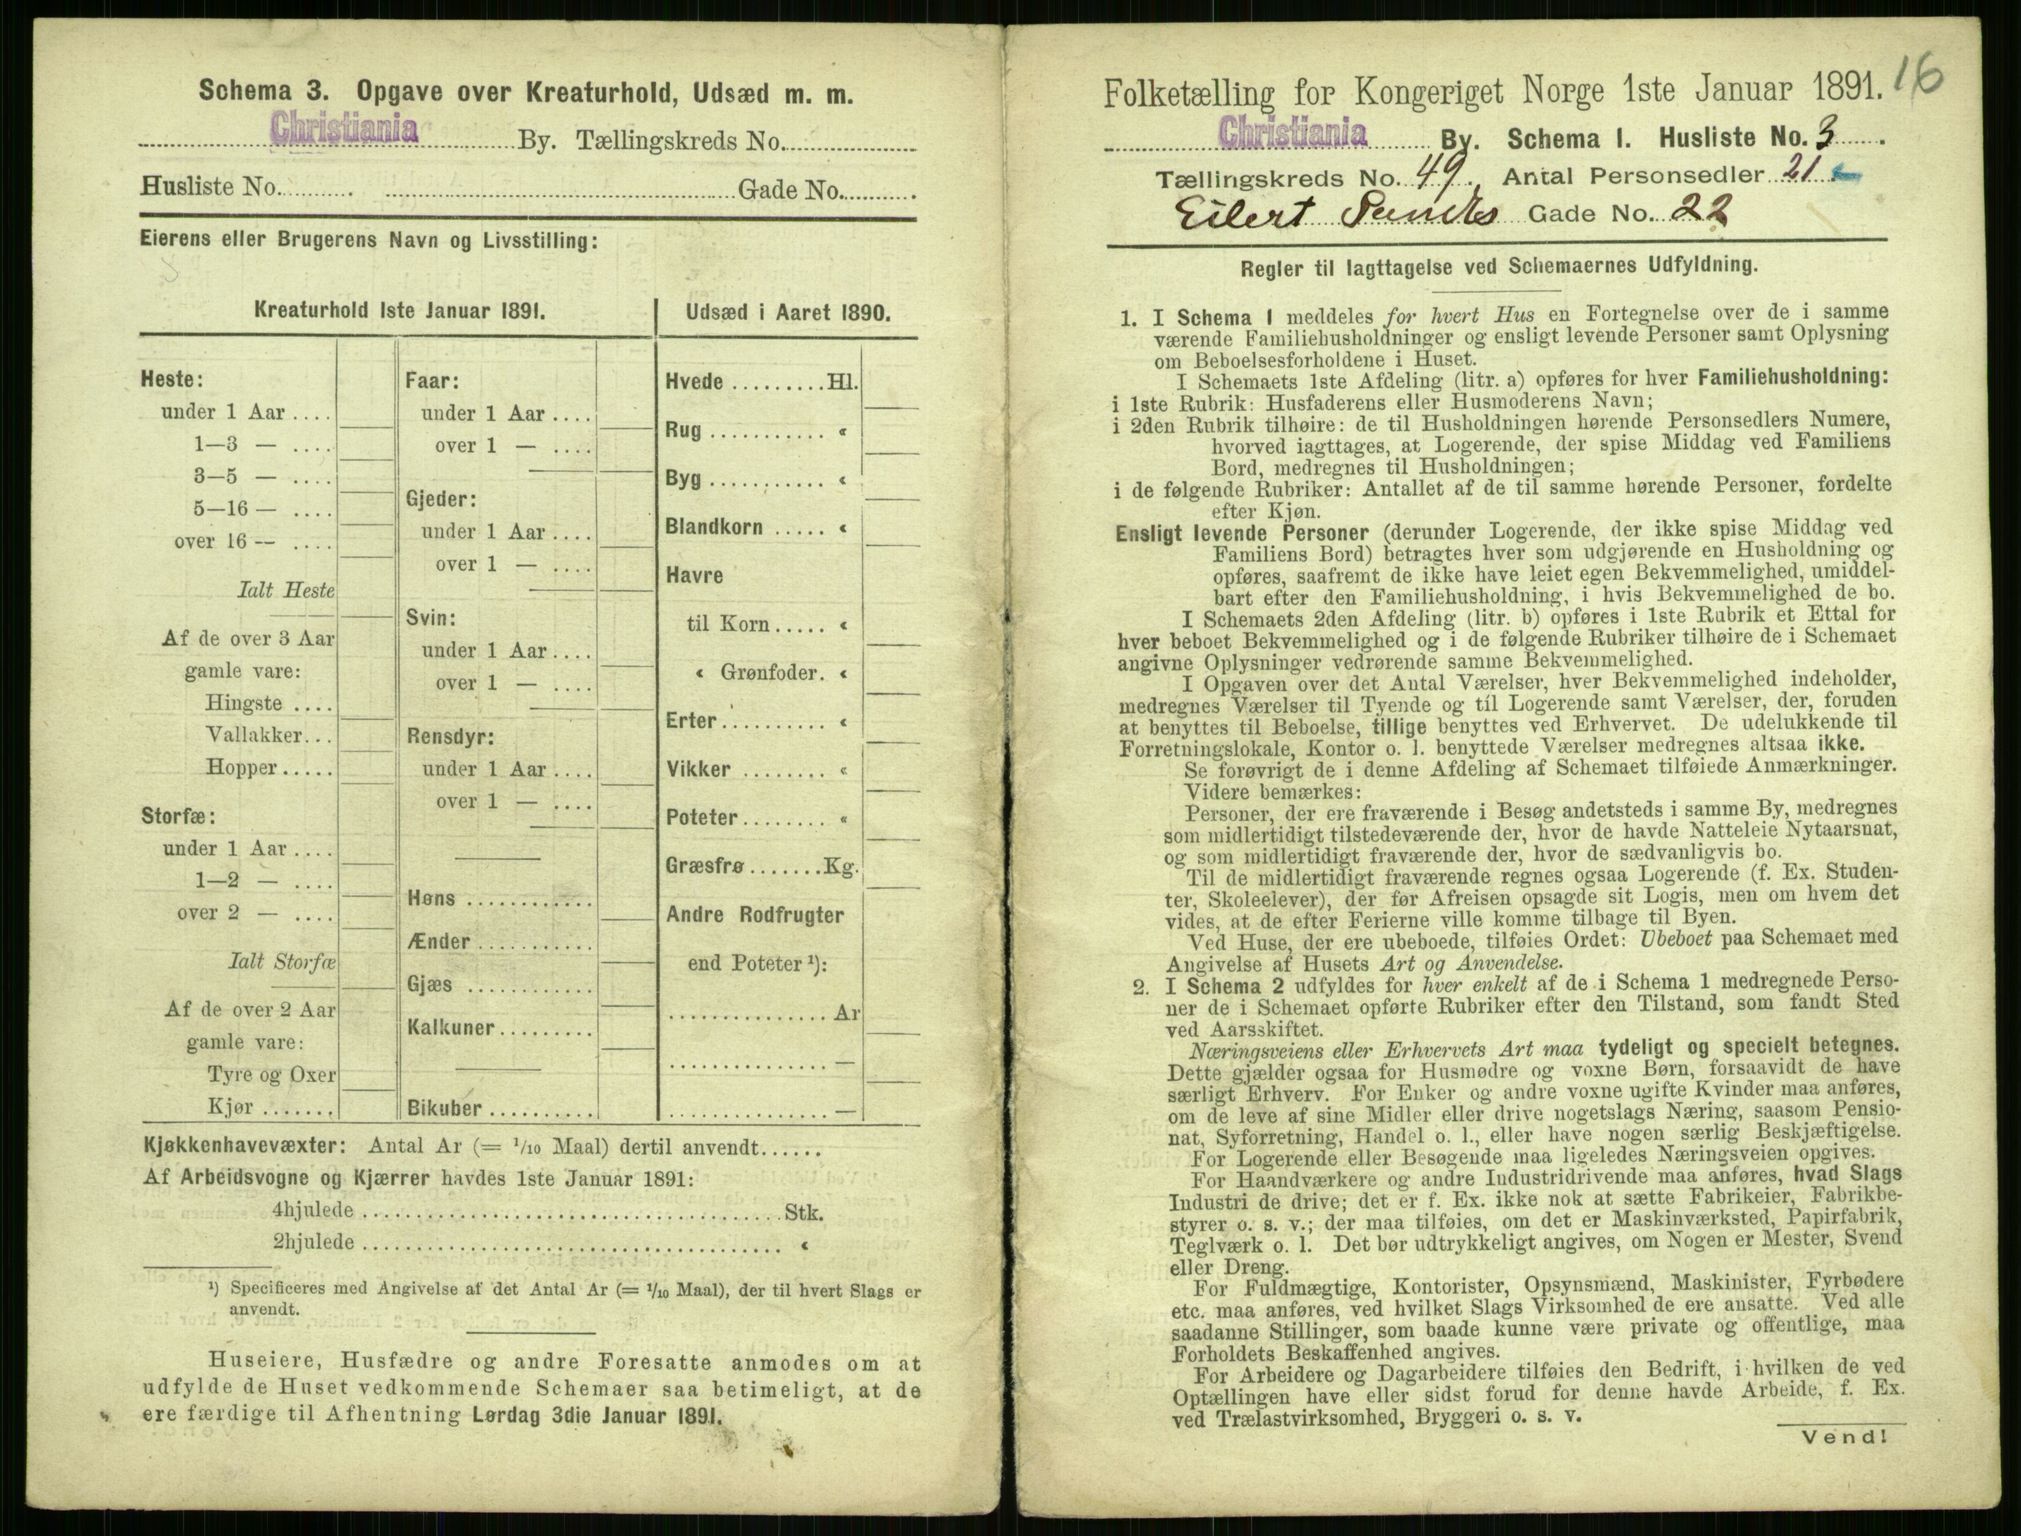 Schema 3. Opgave over Kreaturhold, Udsæd m. m.
Christiania By. Tællingskreds No.
Husliste No. Gade No.
Eierens eller Brugerens Navn og Livsstilling:
Kreaturhold 1ste Januar 1891.
Heste:
under 1 Aar ....
1—3 — ....
3—5 — ....
5—16 — ....
over 16 — ....
Ialt Heste
Af de over 3 Aar
gamle vare:
Hingste ....
Vallakker...
Hopper.....
Storfæ:
under 1 Aar ....
1—2 — ....
over 2 — ....
Ialt Storfæ
Af de over 2 Aar
gamle vare:
Tyre og Oxer
Kjør .......
Faar:
under 1 Aar ....
over 1 — ....
Gjeder:
under 1 Aar ....
over 1 — ....
Svin:
under 1 Aar ....
over 1 — ....
Rensdyr:
under 1 Aar ....
over 1 — ....
Høns ............
Ænder ...........
Gjæs ............
Kalkuner.........
Bikuber ..........
Udsæd i Aaret 1890.
Hvede .........Hl.
Rug ........... «
Byg ........... «
Blandkorn ..... «
Havre
til Korn..... «
« Grønfoder. «
Erter.......... «
Vikker ........ «
Poteter........ «
Græsfrø .......Kg.
Andre Rodfrugter
end Poteter ¹):
............... Ar
............... —
............... —
Kjøkkenhavevæxter: Antal Ar (= 1/10 Maal) dertil anvendt......
Af Arbeidsvogne og Kjærrer havdes 1ste Januar 1891:
4hjulede ........................................Stk.
2hjulede ........................................ «
¹) Specificeres med Angivelse af det Antal Ar (= 1/10 Maal), der til hvert Slags er
anvendt.
Huseiere, Husfædre og andre Foresatte anmodes om at
udfylde de Huset vedkommende Schemaer saa betimeligt, at de
ere færdige til Afhentning Lørdag 3die Januar 1891.
16
Folketælling for Kongeriget Norge 1ste Januar 1891.
Christiania By. Schema 1. Husliste No. 3
Tællingskreds No. 49. Antal Personsedler 21
Eilert Sundts Gade No. 22
Regler til Iagttagelse ved Schemaernes Udfyldning.
1. I Schema 1 meddeles for hvert Hus en Fortegnelse over de i samme
værende Familiehusholdninger og ensligt levende Personer samt Oplysning
om Beboelsesforholdene i Huset.
I Schemaets 1ste Afdeling (litr. a) opføres for hver Familiehusholdning:
i 1ste Rubrik: Husfaderens eller Husmoderens Navn;
i 2den Rubrik tilhøire: de til Husholdningen hørende Personsedlers Numere,
hvorved iagttages, at Logerende, der spise Middag ved Familiens
Bord, medregnes til Husholdningen;
i de følgende Rubriker: Antallet af de til samme hørende Personer, fordelte
efter Kjøn.
Ensligt levende Personer (derunder Logerende, der ikke spise Middag ved
Familiens Bord) betragtes hver som udgjørende en Husholdning og
opføres, saafremt de ikke have leiet egen Bekvemmelighed, umiddel-
bart efter den Familiehusholdning, i hvis Bekvemmelighed de bo.
I Schemaets 2den Afdeling (litr. b) opføres i 1ste Rubrik et Ettal for
hver beboet Bekvemmelighed og i de følgende Rubriker tilhøire de i Schemaet
angivne Oplysninger vedrørende samme Bekvemmelighed.
I Opgaven over det Antal Værelser, hver Bekvemmelighed indeholder,
medregnes Værelser til Tyende og til Logerende samt Værelser, der, foruden
at benyttes til Beboelse, tillige benyttes ved Erhvervet. De udelukkende til
Forretningslokale, Kontor o. l. benyttede Værelser medregnes altsaa ikke.
Se forøvrigt de i denne Afdeling af Schemaet tilføiede Anmærkninger.
Videre bemærkes:
Personer, der ere fraværende i Besøg andetsteds i samme By, medregnes
som midlertidigt tilstedeværende der, hvor de havde Natteleie Nytaarsnat,
og som midlertidigt fraværende der, hvor de sædvanligvis bo.
Til de midlertidigt fraværende regnes ogsaa Logerende (f. Ex. Studen-
ter, Skoleelever), der før Afreisen opsagde sit Logis, men om hvem det
vides, at de efter Ferierne ville komme tilbage til Byen.
Ved Huse, der ere ubeboede, tilføies Ordet: Ubeboet paa Schemaet med
Angivelse af Husets Art og Anvendelse.
2. I Schema 2 udfyldes for hver enkelt af de i Schema 1 medregnede Perso-
ner de i Schemaet opførte Rubriker efter den Tilstand, som fandt Sted
ved Aarsskiftet.
Næringsveiens eller Erhvervets Art maa tydeligt og specielt betegnes.
Dette gjælder ogsaa for Husmødre og voxne Børn, forsaavidt de have
særligt Erhverv. For Enker og andre voxne ugifte Kvinder maa anføres,
om de leve af sine Midler eller drive nogetslags Næring, saasom Pensio-
nat, Syforretning, Handel o. l., eller have nogen særlig Beskjæftigelse.
For Logerende eller Besøgende maa ligeledes Næringsveien opgives.
For Haandværkere og andre Industridrivende maa anføres, hvad Slags
Industri de drive; det er f. Ex. ikke nok at sætte Fabrikeier, Fabrikbe-
styrer o. s. v.; der maa tilføies, om det er Maskinværksted, Papirfabrik,
Teglværk o. l. Det bør udtrykkeligt angives, om Nogen er Mester, Svend
eller Dreng.
For Fuldmægtige, Kontorister, Opsynsmænd, Maskinister, Fyrbødere
etc. maa anføres, ved hvilket Slags Virksomhed de ere ansatte. Ved alle
saadanne Stillinger, som baade kunne være private og offentlige, maa
Forholdets Beskaffenhed angives.
For Arbeidere og Dagarbeidere tilføies den Bedrift, i hvilken de ved
Optællingen have eller sidst forud for denne havde Arbeide, f. Ex.
ved Trælastvirksomhed, Bryggeri o. s. v.
Vend!